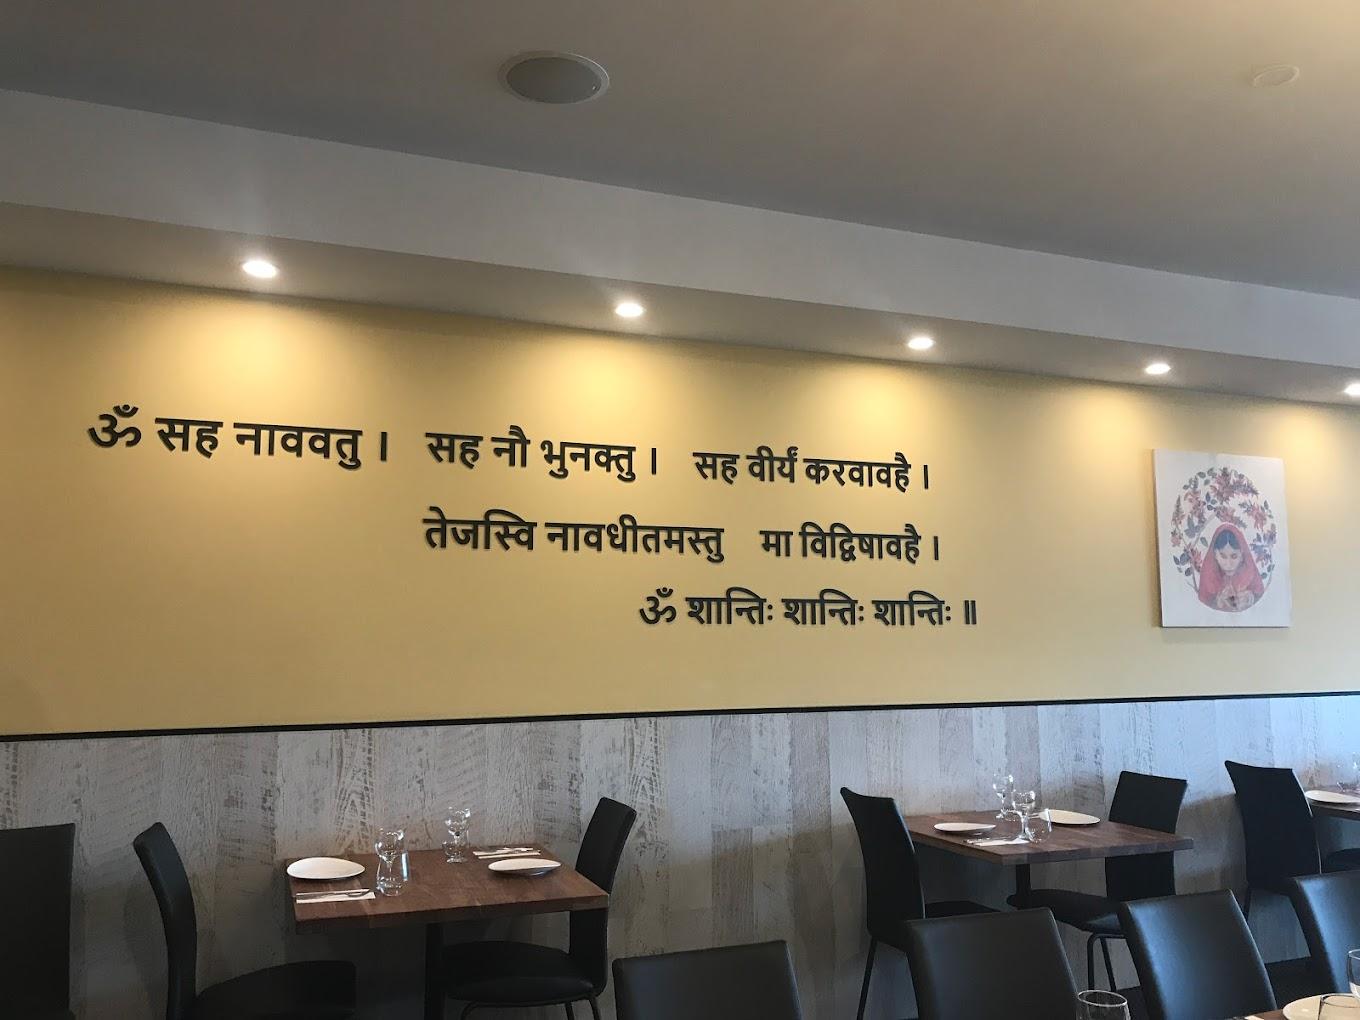 ॐ सह नाववतु । सह नौ भुनक्तु । सह वीर्यं करवावहै ।
तेजस्वि नावधीतमस्तु मा विद्विषावहै ।
ॐ शान्तिः शान्तिः शान्तिः ॥